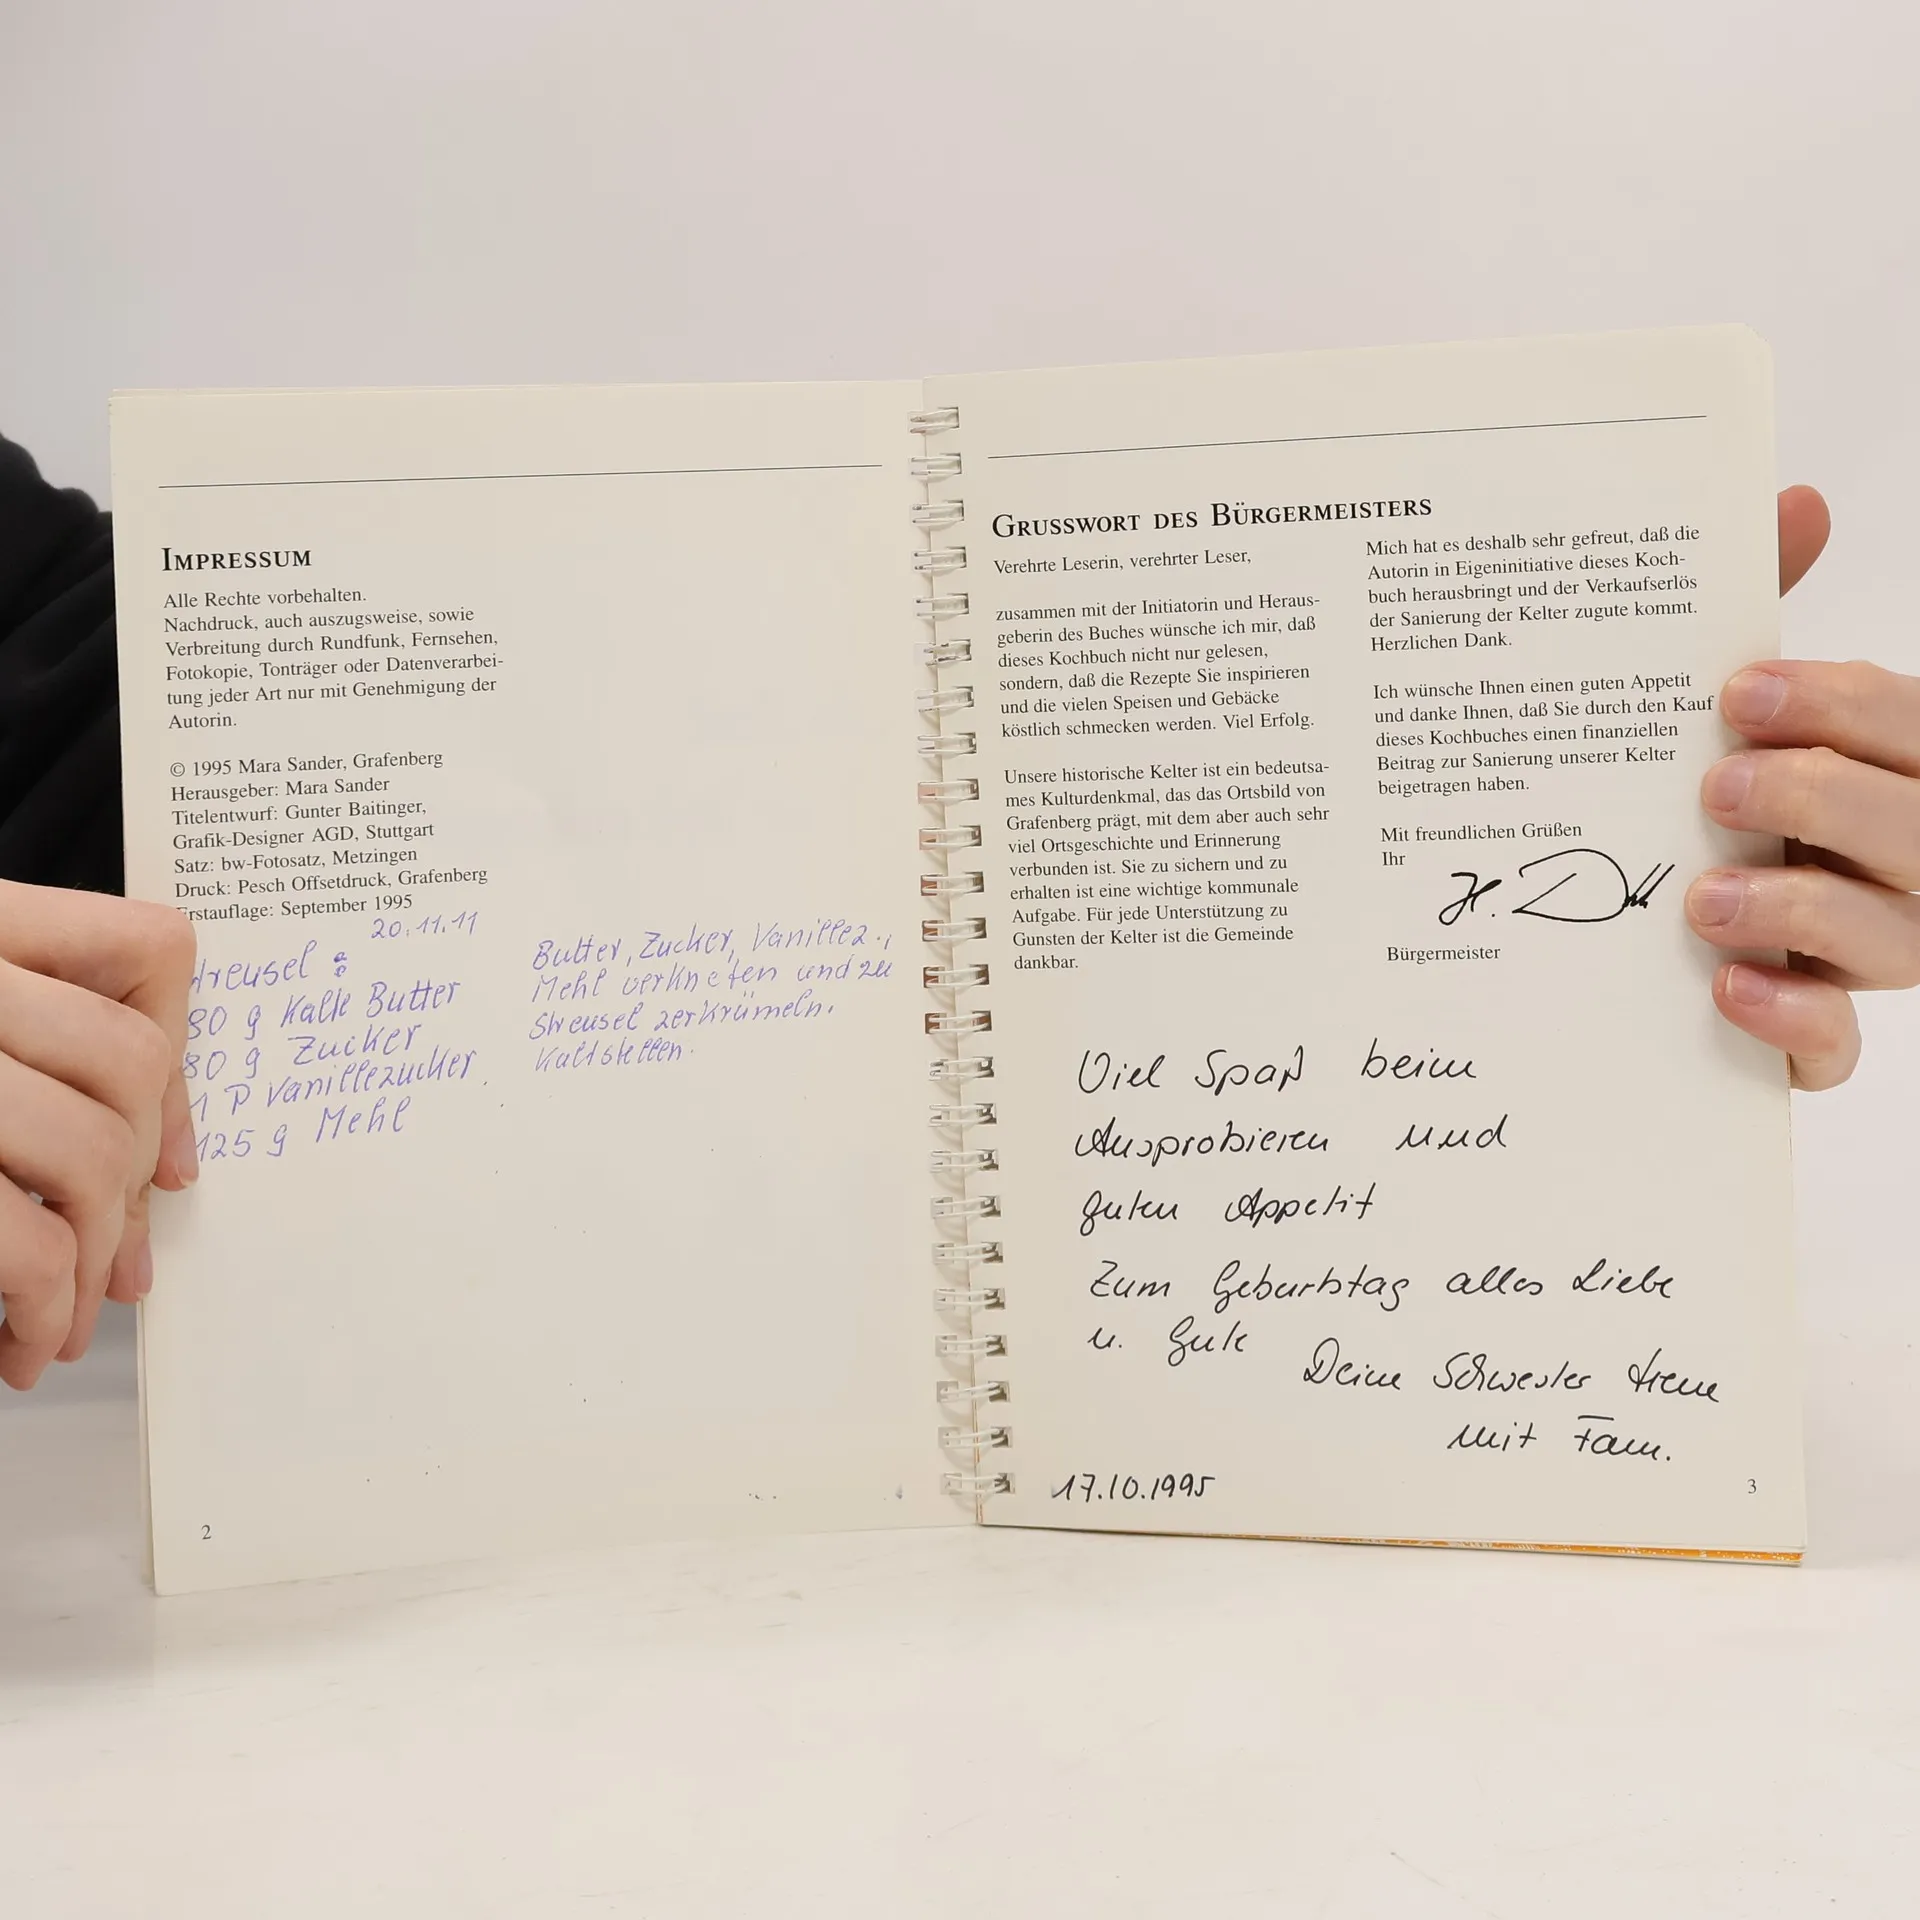 IMPRESSUM
Alle Rechte vorbehalten.
Nachdruck, auch auszugsweise, sowie
Verbreitung durch Rundfunk, Fernsehen,
Fotokopie, Tonträger oder Datenverarbei-
tung jeder Art nur mit Genehmigung der
Autorin.
© 1995 Mara Sander, Grafenberg
Herausgeber: Mara Sander
Titelentwurf: Gunter Baitinger,
Grafik-Designer AGD, Stuttgart
Satz: bw-Fotosatz, Metzingen
Druck: Pesch Offsetdruck, Grafenberg
Erstauflage: September 1995
20.11.11
Streusel :
80 g Kalte Butter
80 g Zucker
1 P Vanillezucker
125 g Mehl
Butter, Zucker, Vanillez.,
Mehl verkneten und zu
Streusel zerkrümeln.
Kaltstellen.
2
GRUSSWORT DES BÜRGERMEISTERS
Verehrte Leserin, verehrter Leser,
zusammen mit der Initiatorin und Heraus-
geberin des Buches wünsche ich mir, daß
dieses Kochbuch nicht nur gelesen,
sondern, daß die Rezepte Sie inspirieren
und die vielen Speisen und Gebäcke
köstlich schmecken werden. Viel Erfolg.
Unsere historische Kelter ist ein bedeutsa-
mes Kulturdenkmal, das das Ortsbild von
Grafenberg prägt, mit dem aber auch sehr
viel Ortsgeschichte und Erinnerung
verbunden ist. Sie zu sichern und zu
erhalten ist eine wichtige kommunale
Aufgabe. Für jede Unterstützung zu
Gunsten der Kelter ist die Gemeinde
dankbar.
Mich hat es deshalb sehr gefreut, daß die
Autorin in Eigeninitiative dieses Koch-
buch herausbringt und der Verkaufserlös
der Sanierung der Kelter zugute kommt.
Herzlichen Dank.
Ich wünsche Ihnen einen guten Appetit
und danke Ihnen, daß Sie durch den Kauf
dieses Kochbuches einen finanziellen
Beitrag zur Sanierung unserer Kelter
beigetragen haben.
Mit freundlichen Grüßen
Ihr
Bürgermeister
Viel Spaß beim
Ausprobieren und
guten Appetit
Zum Geburtstag alles Liebe
u. Gute
Deine Schwester Irene
mit Fam.
17.10.1995
3